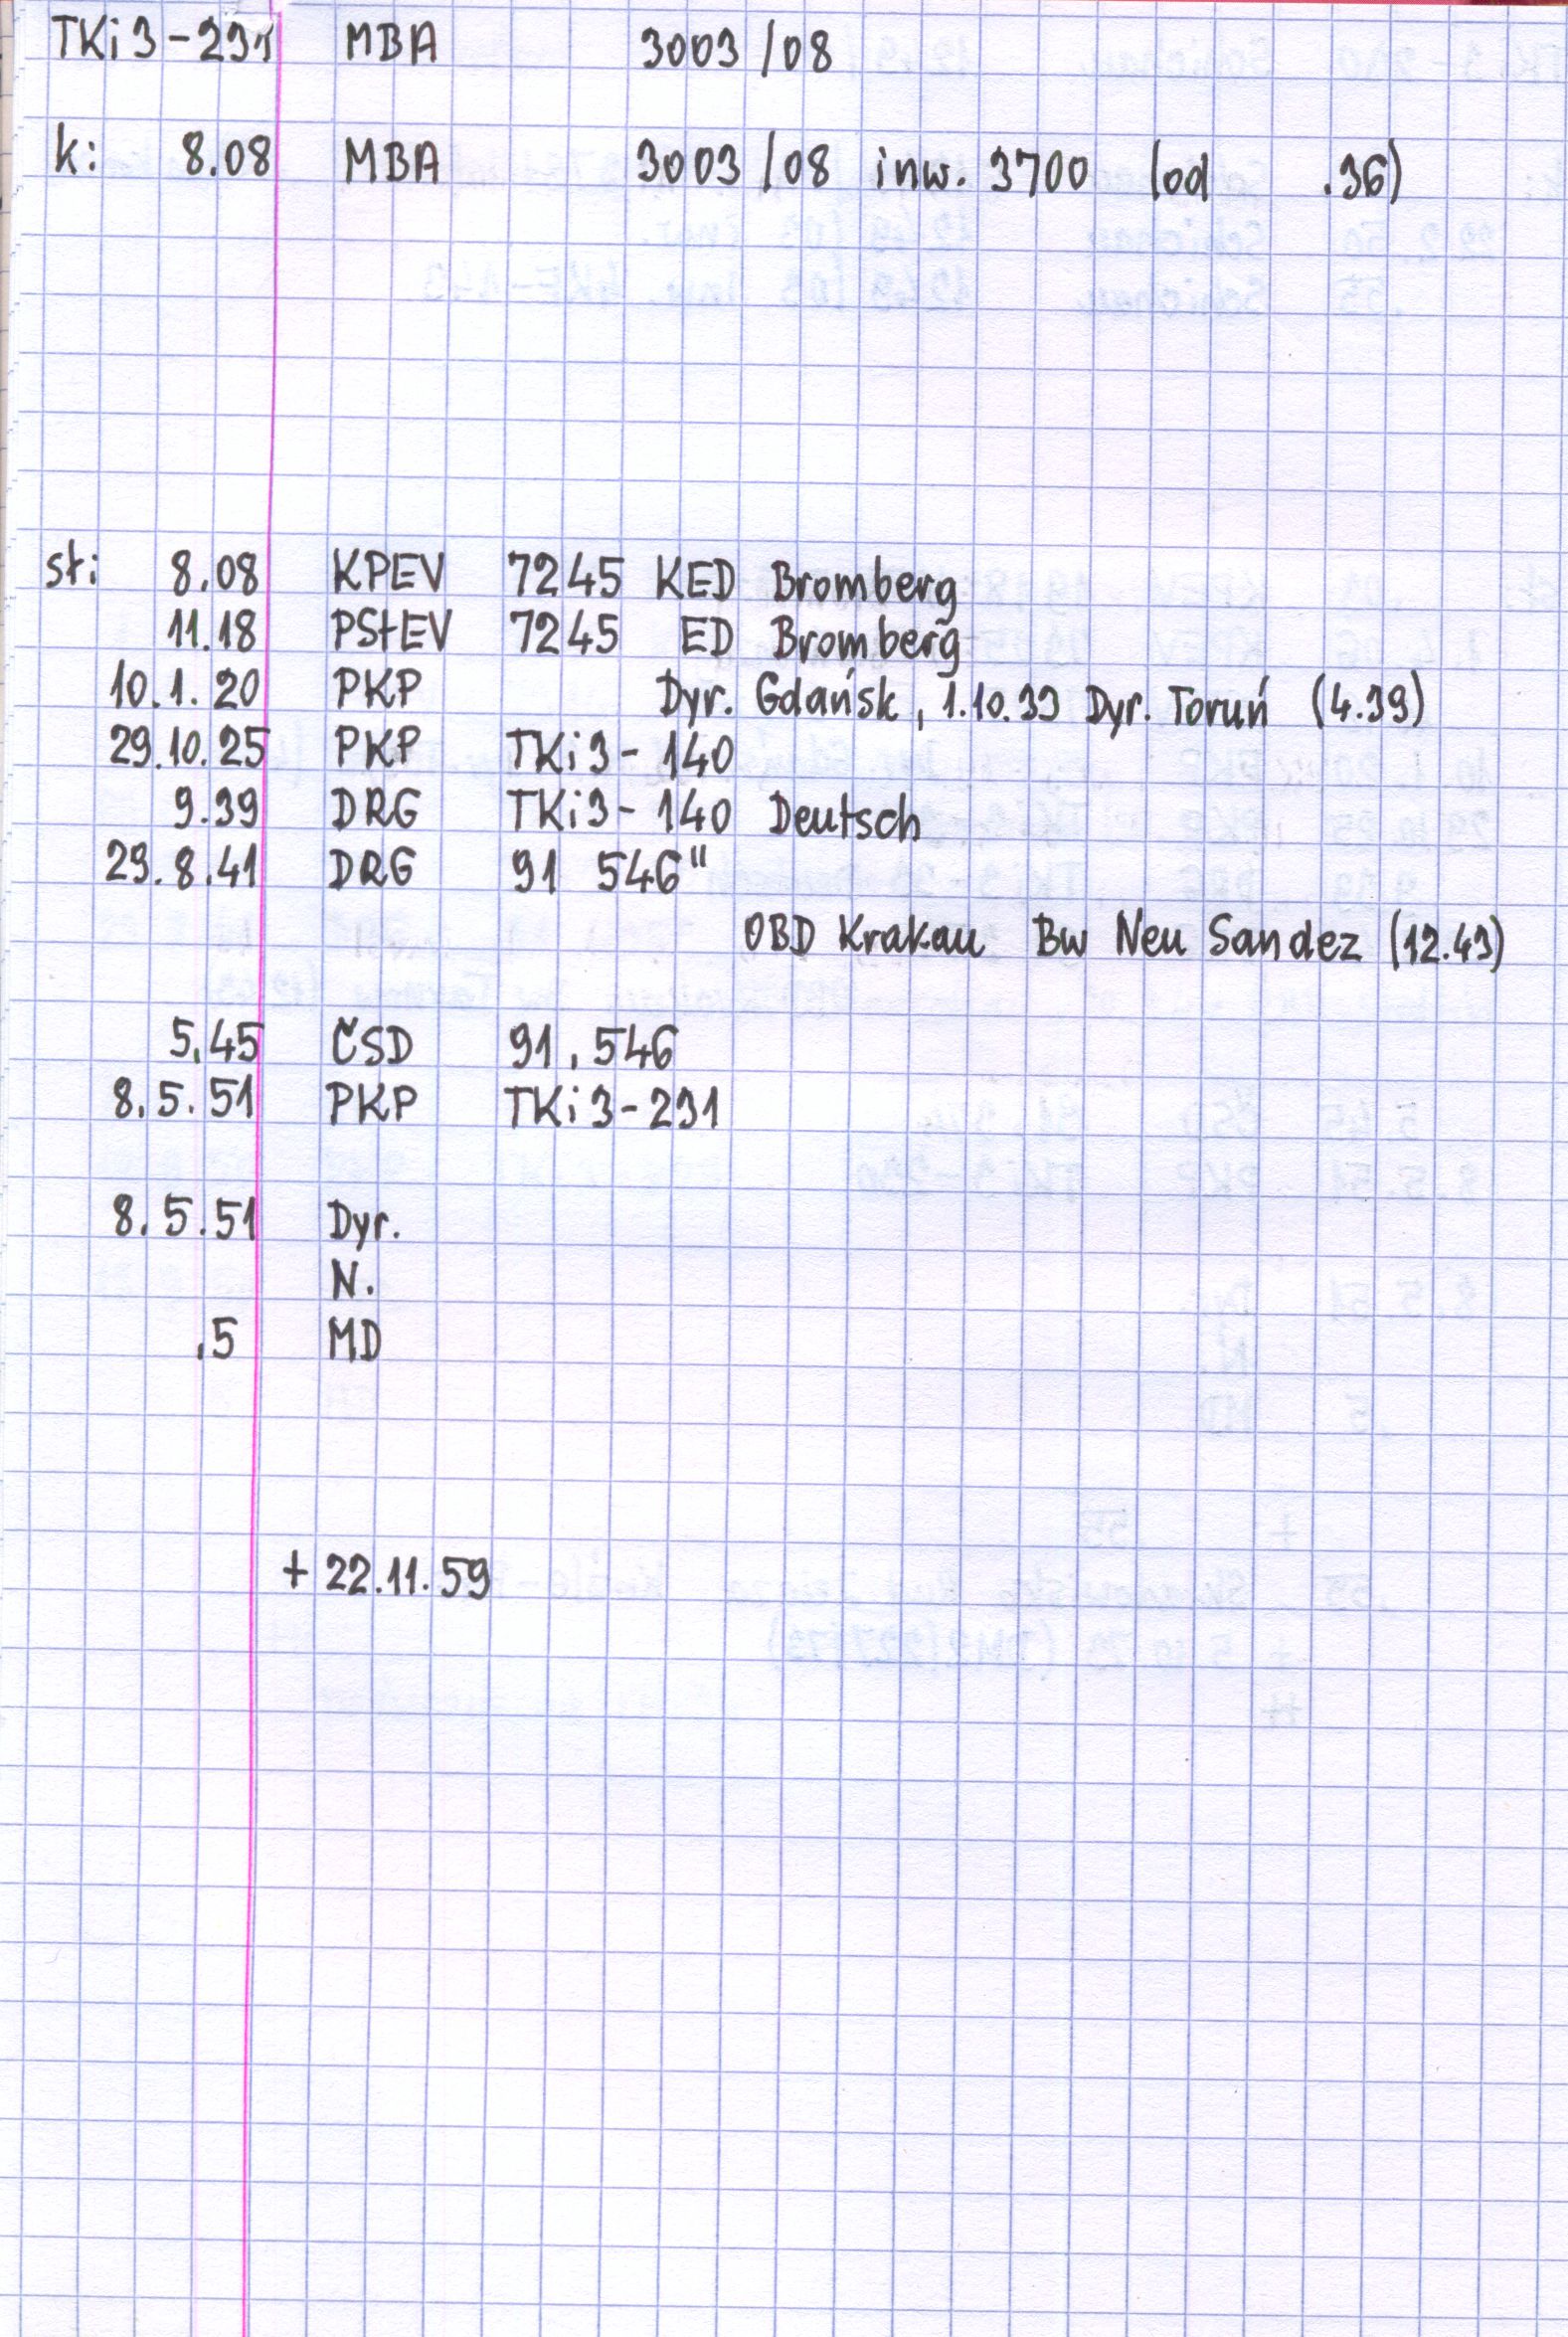 TKi3-291 MBA 3003/08
k: 8.08 MBA 3003/08 inw. 3700 (od .36)
st: 8.08 KPEV 7245 KED Bromberg
11.18 PStEV 7245 ED Bromberg
10.1.20 PKP Dyr. Gdańsk, 1.10.33 Dyr. Toruń (4.39)
29.10.25 PKP TKi3-140
9.39 DRG TKi3-140 Deutsch
29.8.41 DRG 91 546"
OBD Krakau Bw Neu Sandez (12.43)
5.45 ČSD 91.546
8.5.51 PKP TKi3-291
8.5.51 Dyr.
N.
.5 MD
+ 22.11.59